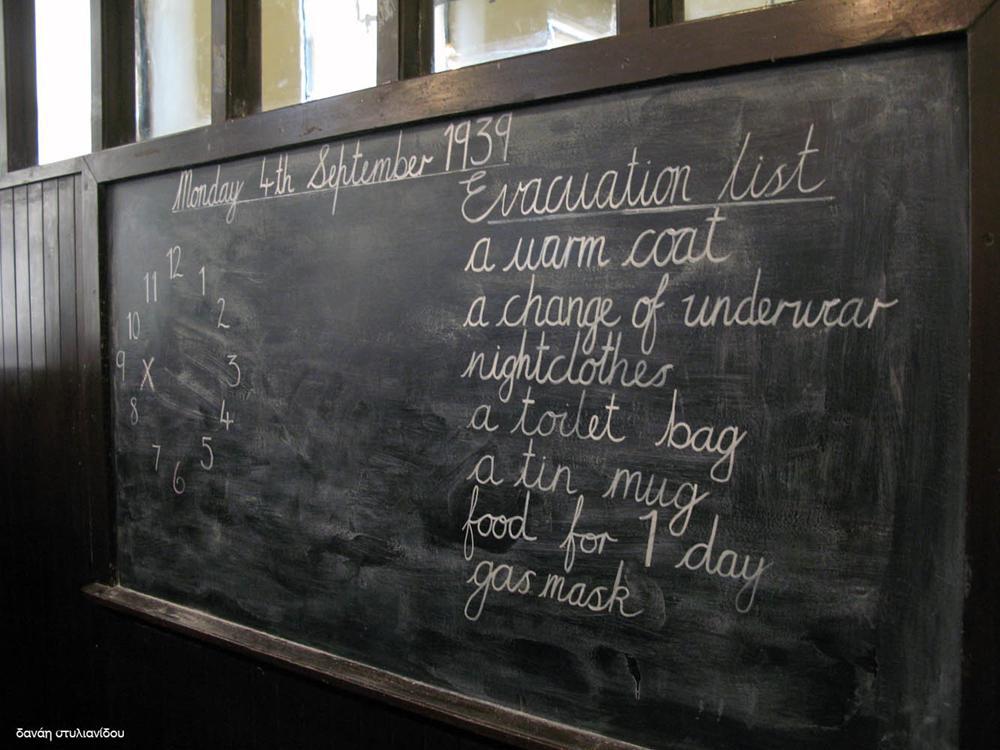 Monday 4th September 1939
12
11
1
10
2
9
X
3
8
4
7
5
6
Evacuation list
a warm coat
a change of underwear
nightclothes
a toilet bag
a tin mug
food for 1 day
gas mask
δανάη στυλιανίδου